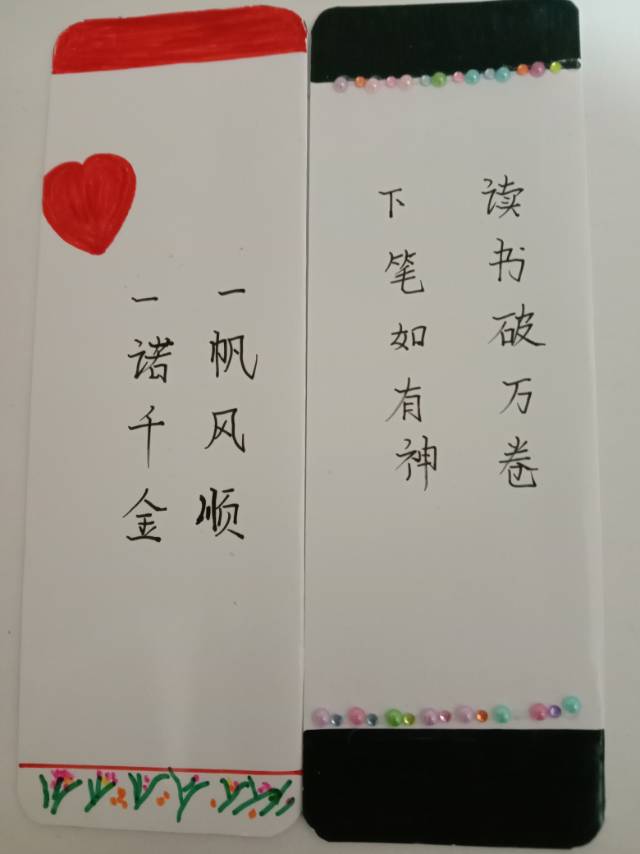 一帆风顺
一诺千金
读书破万卷
下笔如有神